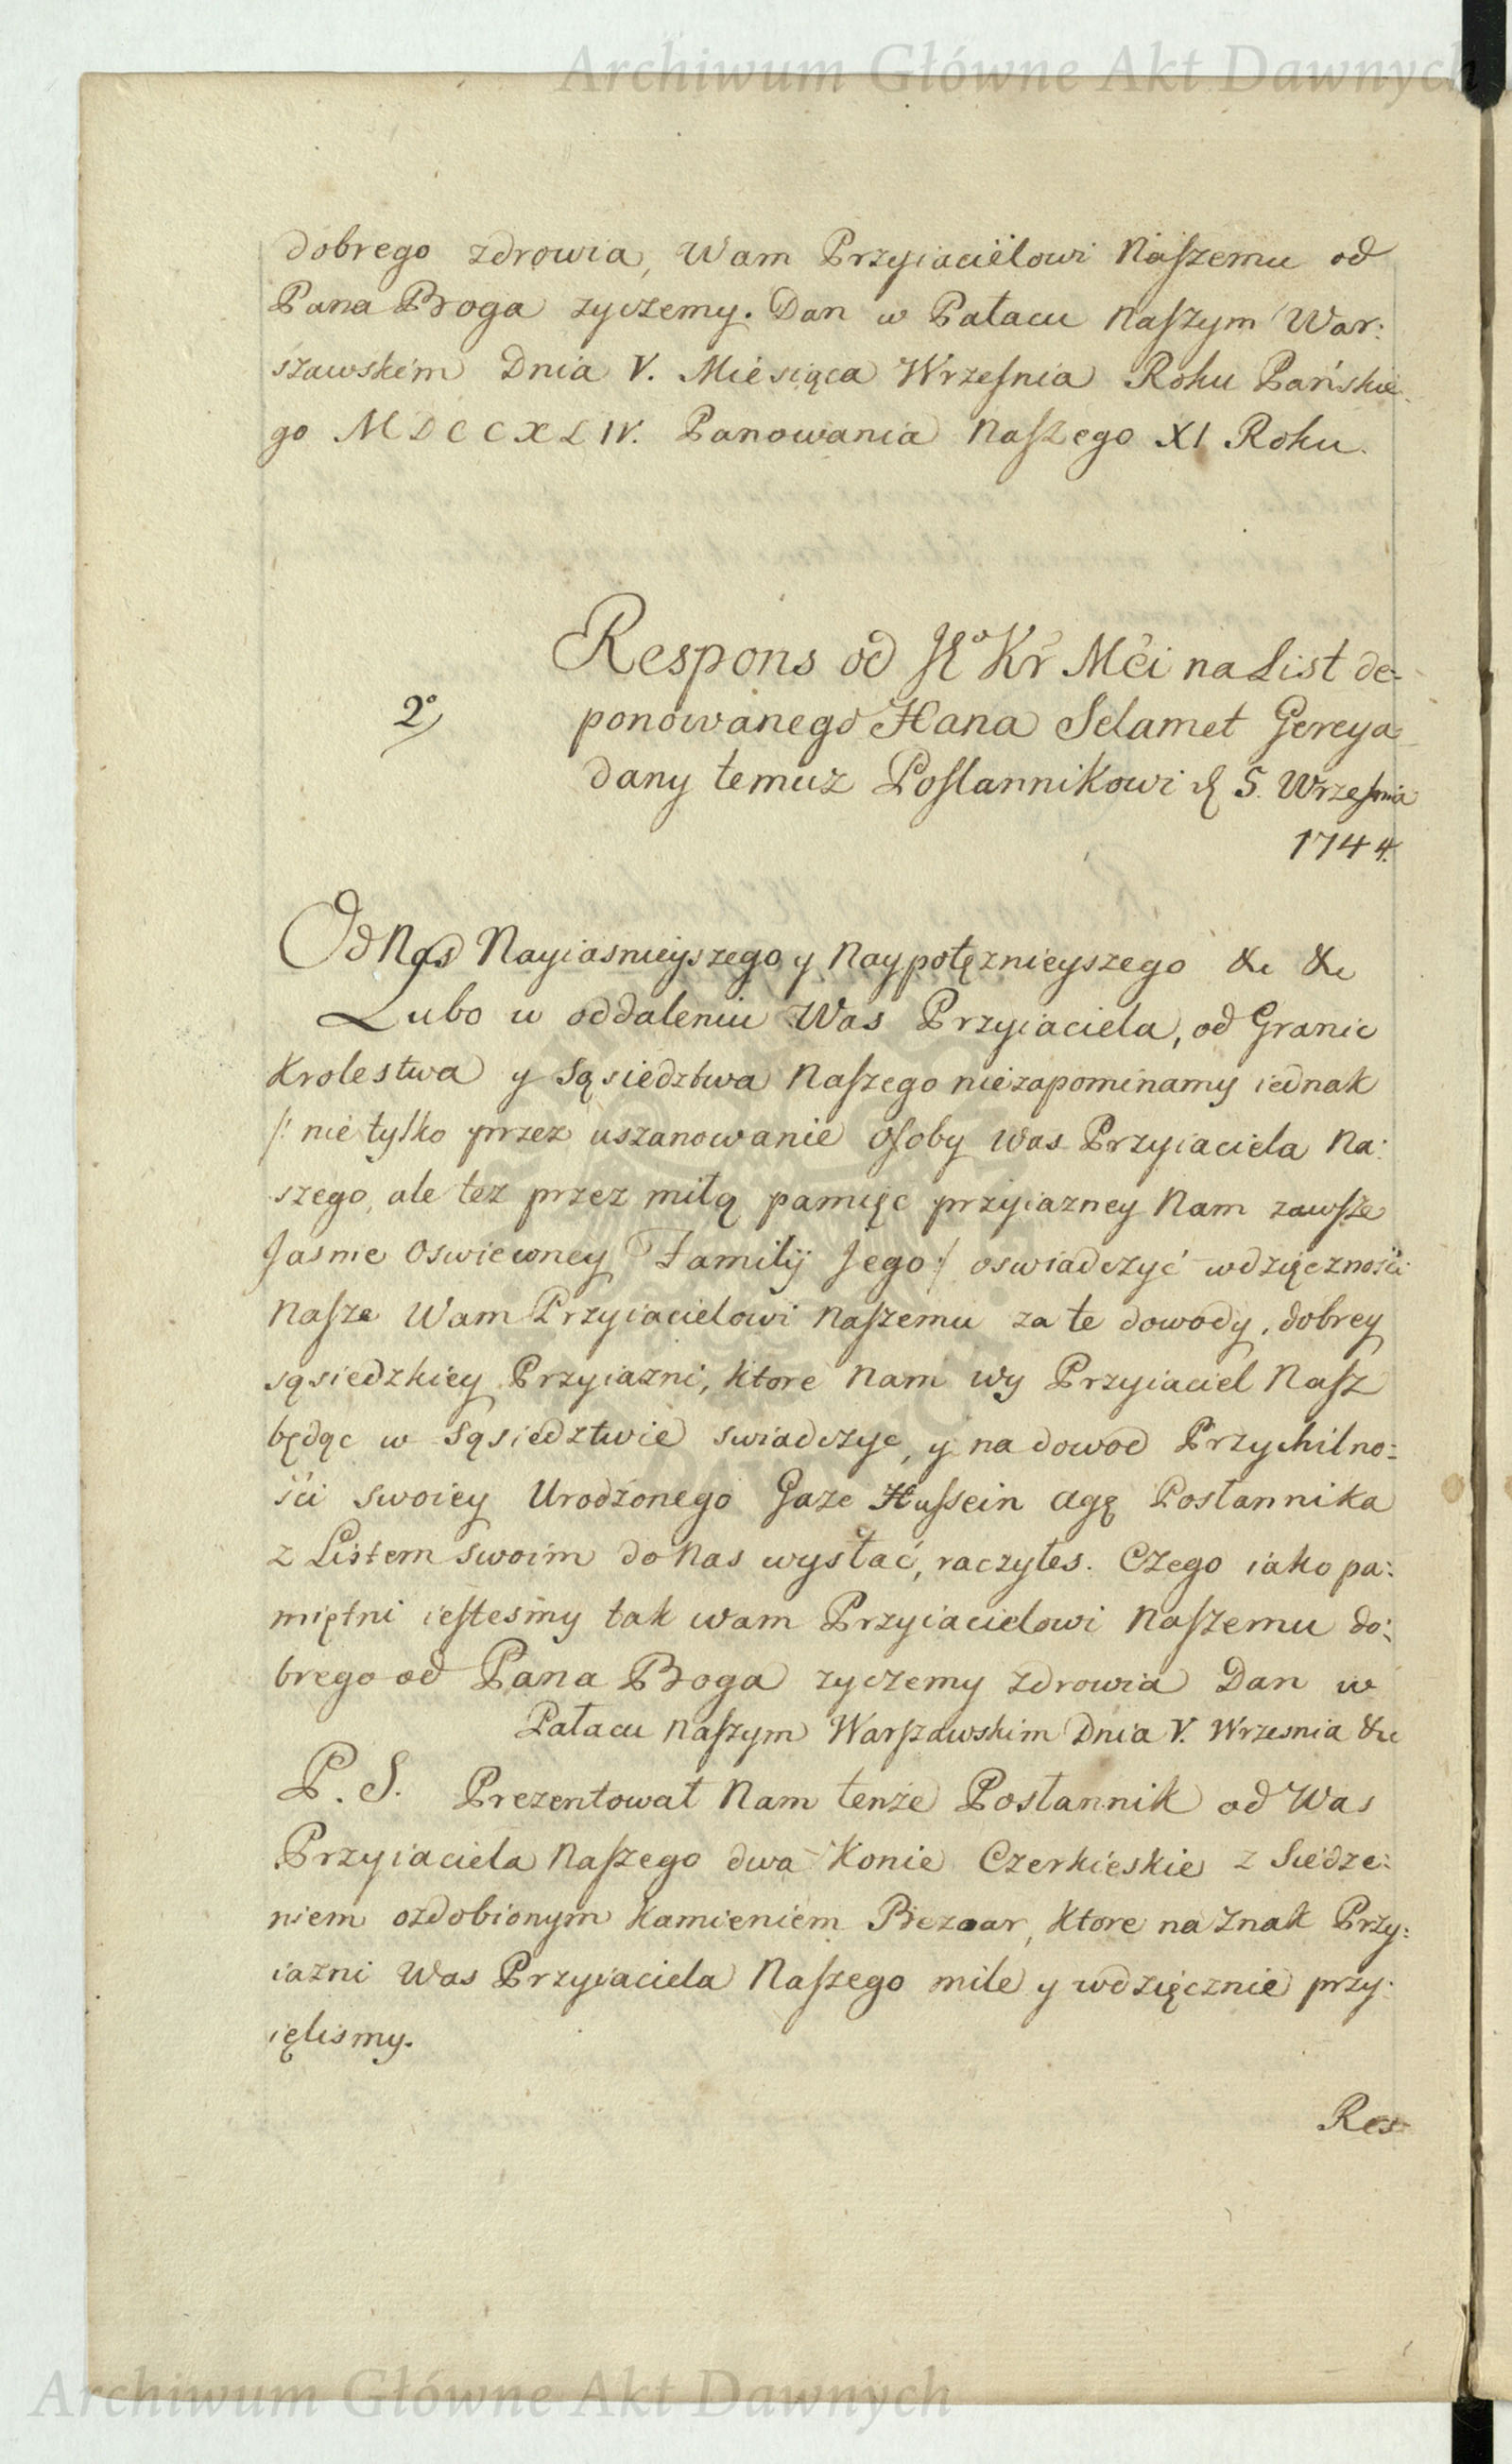 Archiwum Główne Akt Dawnych
dobrego zdrowia, Wam Przyiacielowi Naszemu od
Pana Boga zyczemy. Dan w Pałacu Naszym War:
szawskim Dnia V. Miesiąca Wrzesnia Roku Pańskie
go MDCCXLIV. Panowania Naszego XI Roku.
Respons od JKo Kr Mći na List de-
2o) ponowanego Hana Selamet Gereya
dany temuz Posłannikowi d 5. Wrzesnia
1744.
Od Nas Nayiasnieyszego y Naypotęznieyszego &c &c
Lubo w oddaleniu Was Przyiaciela, od Granic
Krolestwa y Sąsiedztwa Naszego niezapominamy iednak
/: nie tylko przez uszanowanie Osoby Was Przyiaciela Na:
szego, ale tez przez miłą pamięc przyiazney Nam zawsze
Jasnie Oswieconey Familij Jego :/ oswiadczyć wdzięcznośći
Nasze Wam Przyiacielowi Naszemu za te dowody, dobrey
sąsiedzkiey Przyiazni, ktore Nam wy Przyiaciel Nasz
będąc w Sąsiedztwie swiadczyc, y na dowod Przychilno:
śći swoiey Urodzonego Gaze Hussein Agę Posłannika
z Listem swoim do Nas wysłać, raczyłes. Czego iako pa:
miętni iestesmy tak wam Przyiacielowi Naszemu do:
brego od Pana Boga zyczemy zdrowia Dan w
Pałacu Naszym Warszawskim Dnia V. Wrzesnia &c
P. S. Prezentował Nam tenże Posłannik od Was
Przyiaciela Naszego dwa Konie Czerkieskie z Siedze:
niem ozdobionym Kamieniem Bezoar, ktore na Znak Przy:
iazni Was Przyiaciela Naszego mile y wdzięcznie przy:
ięlismy.
Res
Archiwum Główne Akt Dawnych